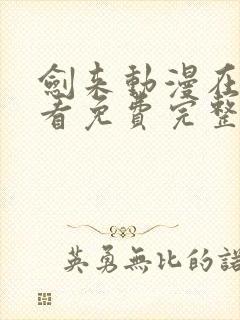 劍來動漫在
看免費完整
英勇無比的諾